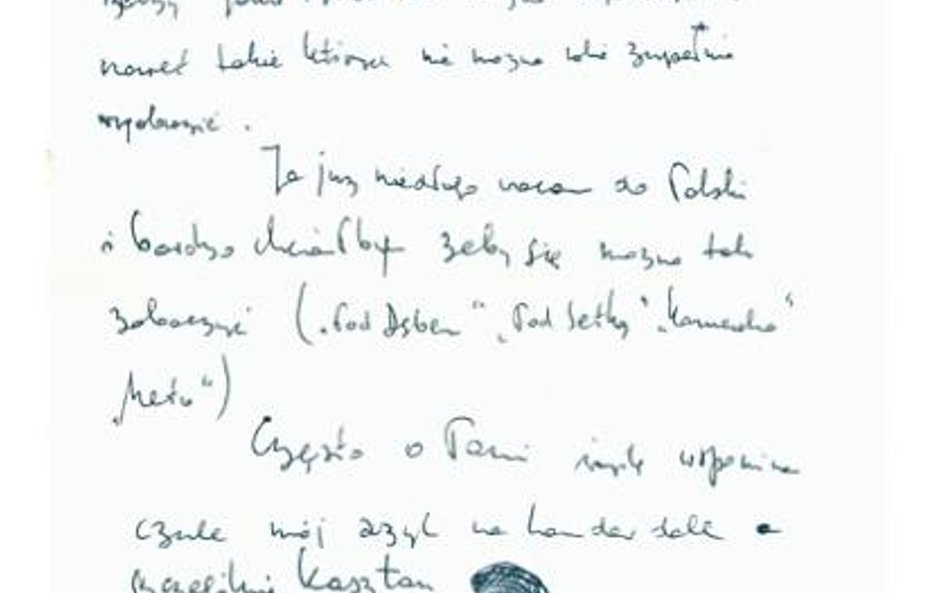 nawet takie których nie można sobie zupełnie
wyobrazić.
Ja już niedługo wracam do Polski
i bardzo chciałbym żeby się można tak
zobaczyć („Pod Dębem" „Pod Setką" „Kameralna"
„Metro")
Często o Pani myślę wspomina
czule mój azyl na
szczególnie kasztan